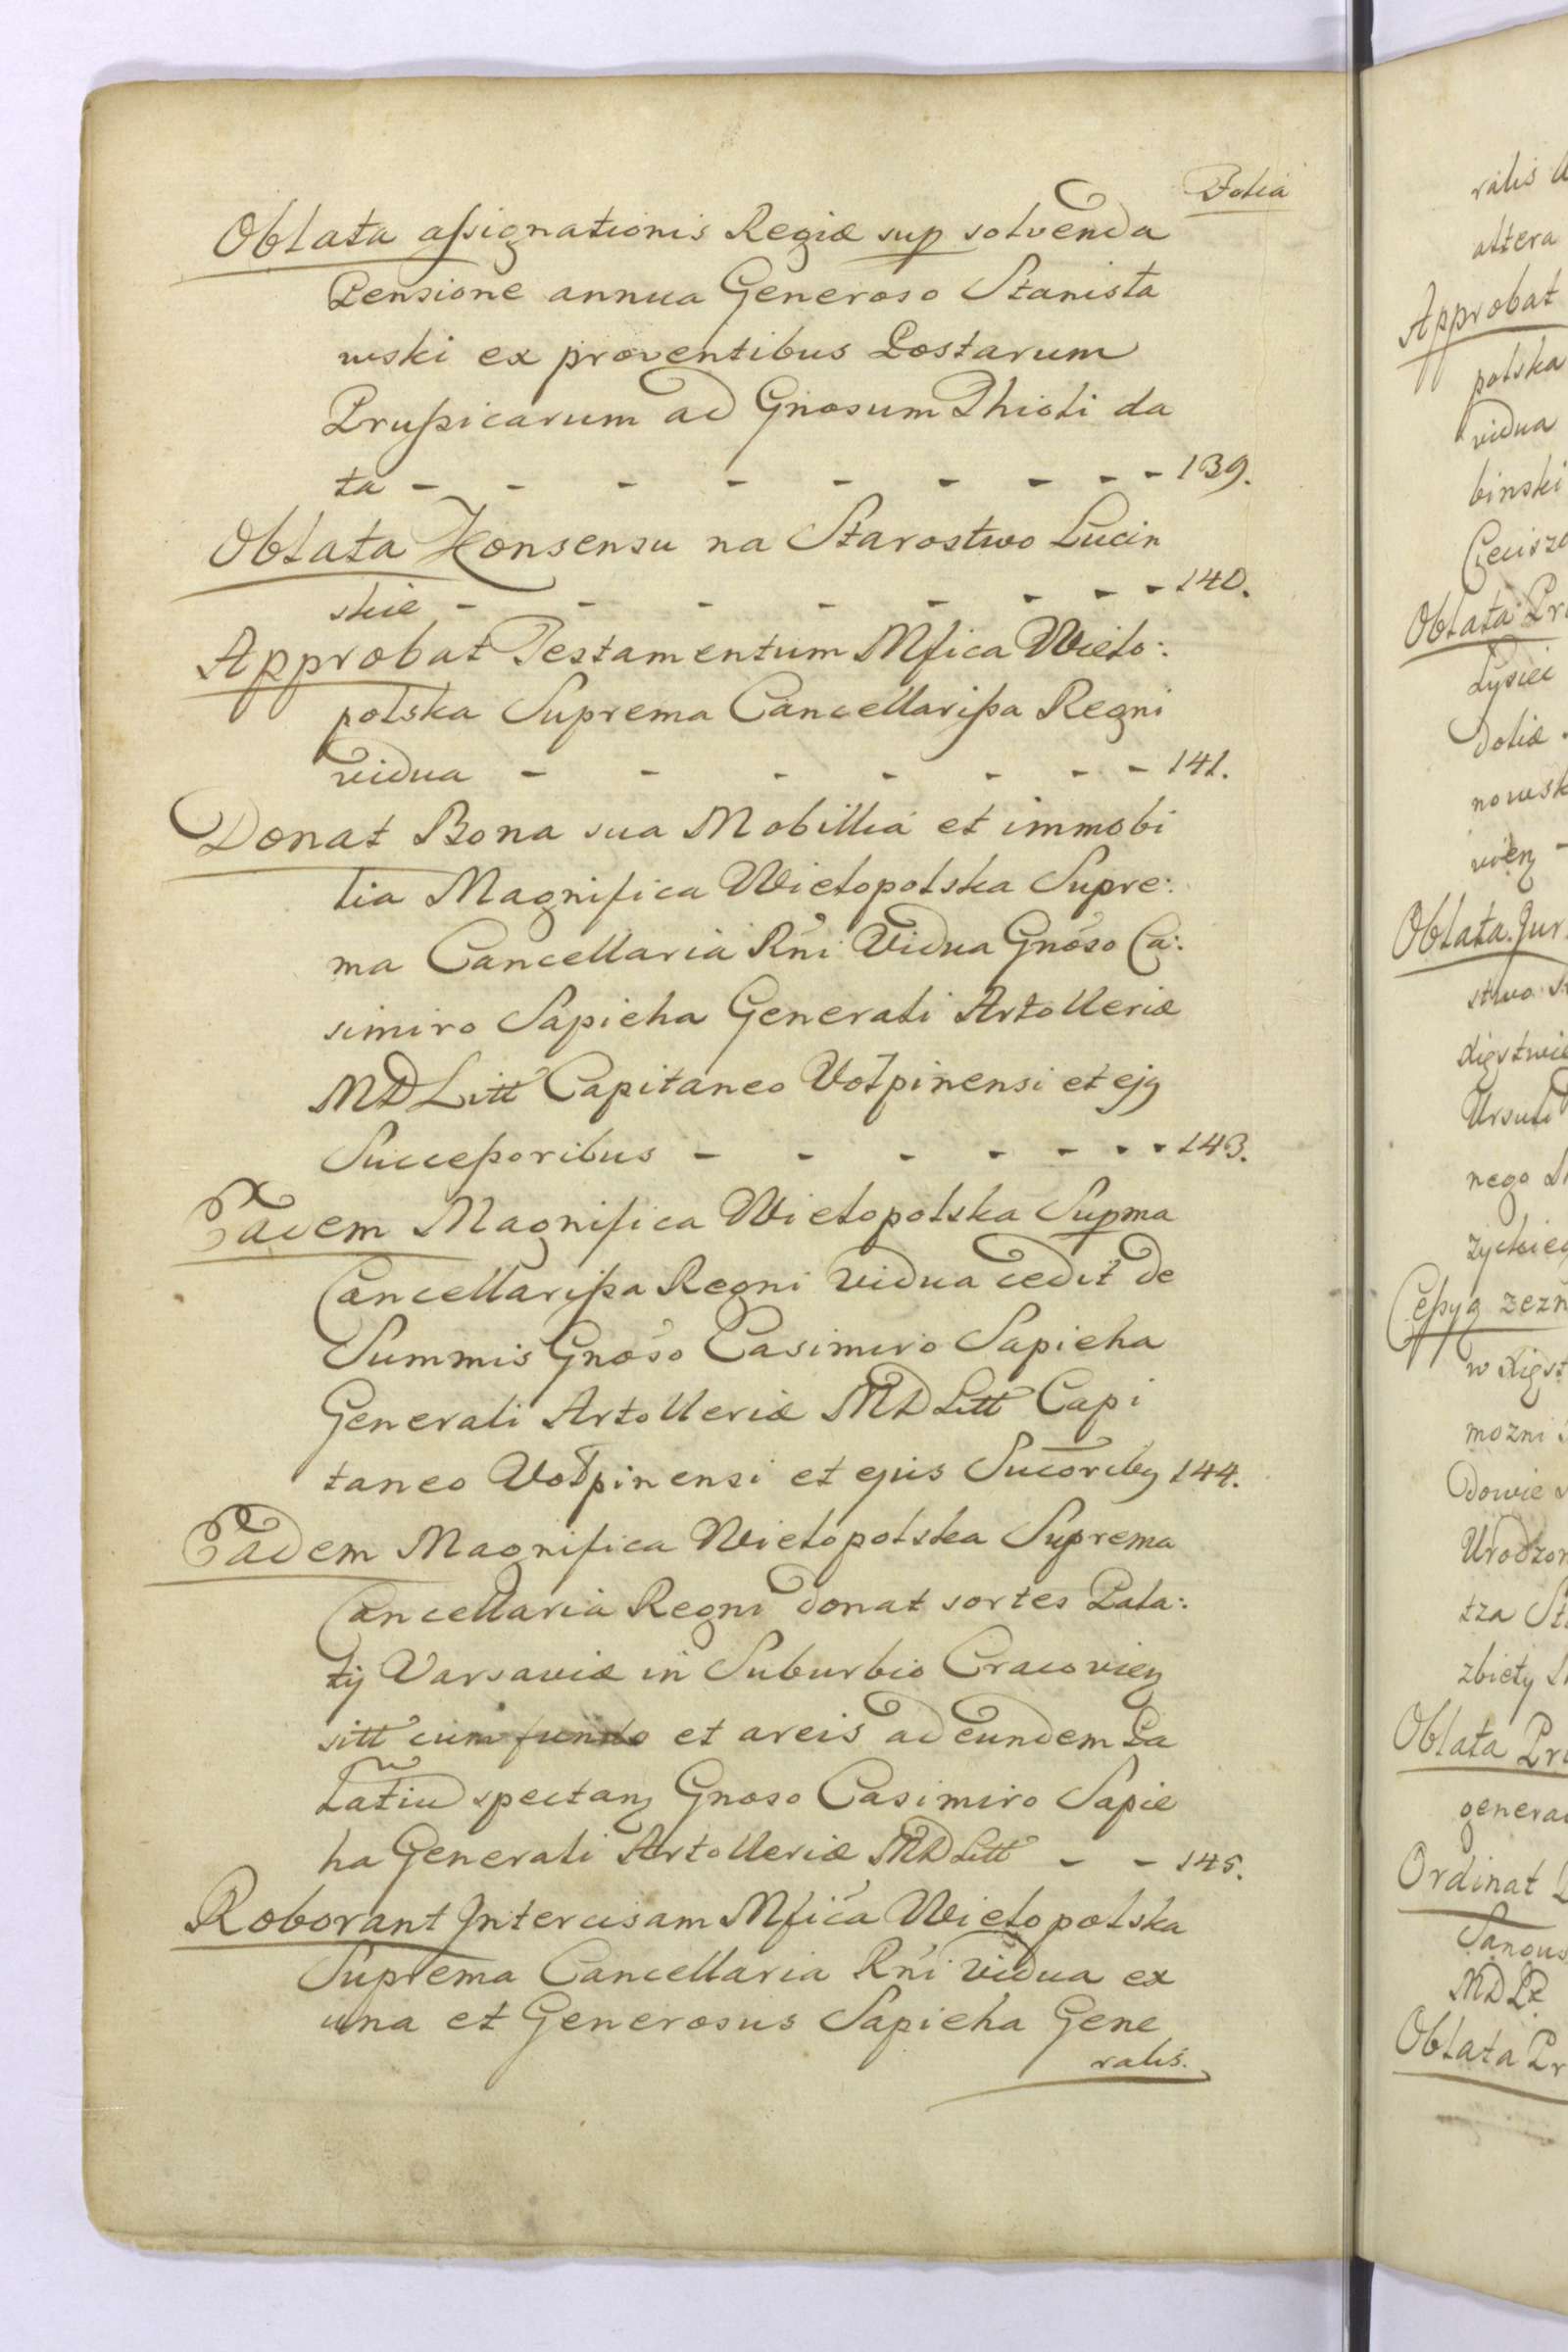 Folia
Oblata assignationis Regiæ sup solvenda
Pensione annua Generoso Stanisła
wski ex proventibus Postarum
Prussicarum ad Gnosum Thioli da
ta - - - - - - - - - 139.
Oblata Konsensu na Starostwo Lucin
skie - - - - - - - - 140.
Approbat Testamentum Mfica Wielo:
polska Suprema Cancellarissa Regni
vidua - - - - - - - 141.
Donat Bona sua Mobillia et immobi
lia Magnifica Wielopolska Supre:
ma Cancellaria Rni Vidua Gnoso Ca:
simiro Sapieha Generali Artolleriæ
MD Litt Capitaneo Wołpinensi et ejq
Successoribus - - - - - - - 143.
Eadem Magnifica Wielopolska Supma
Cancellarissa Regni vidua cedit de
Summis Gnoso Casimiro Sapieha
Generali Artolleriæ MD Litt Capi
taneo Wołpinensi et ejus Sucoribq 144.
Eadem Magnifica Wielopolska Suprema
Cancellaria Regni donat sortes Pala:
tij Varsaviæ in Suburbio Cracovien
sitt cum fundo et areis ad eundem Pa
latiu spectan Gnoso Casimiro Sapie
ha Generali Artolleriæ MD Litt - - 145.
Roborant Intercisam Mfica Wielopolska
Suprema Cancellaria Rni vidua ex
una et Generosus Sapieha Gene
ralis.
ralis
altera
Approbat
polska
vidua
binski
Oblata
nowsk
Oblata Jur
stwo
nego
zezn
w
mozni
dowie
Urodzon
zbiety
Oblata
genera
Ordinat
MD
Oblata